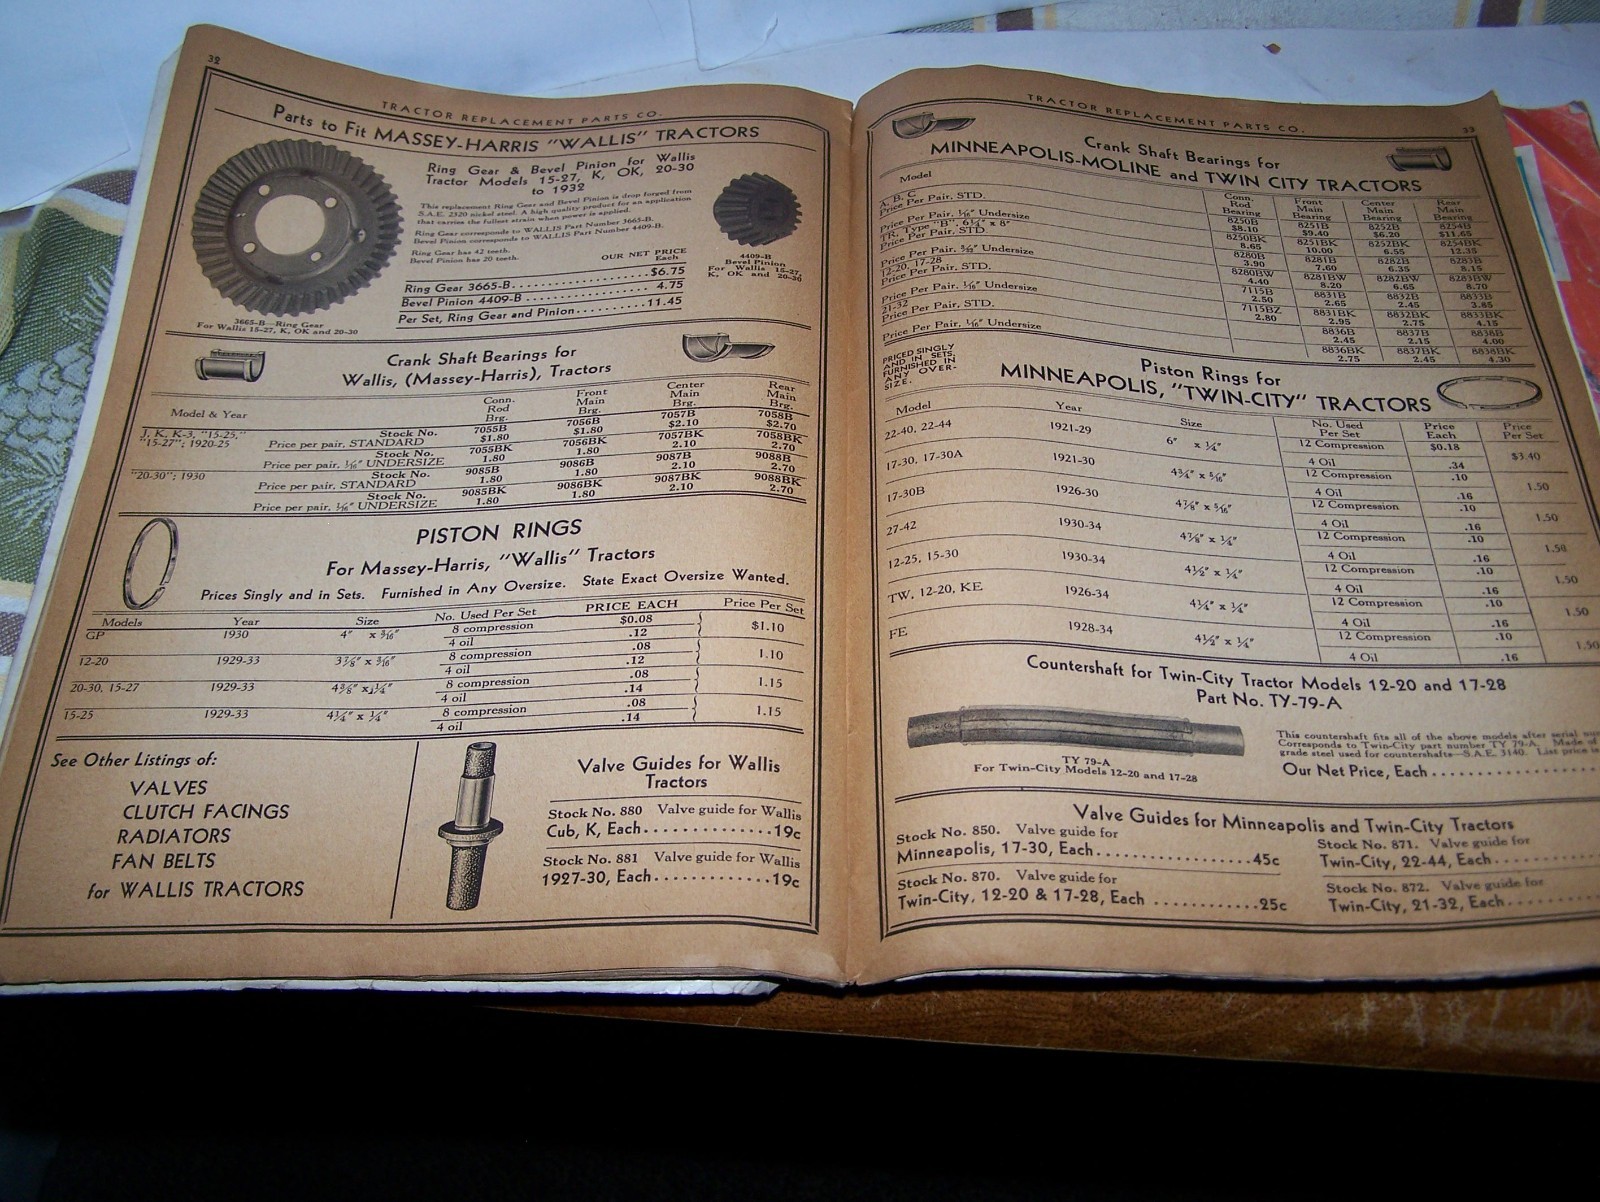 32
TRACTOR REPLACEMENT PARTS CO.
Parts to Fit MASSEY-HARRIS "WALLIS" TRACTORS
Ring Gear & Bevel Pinion for Wallis
Tractor Models 15-27, K, OK, 20-30
to 1932
This replacement Ring Gear and Bevel Pinion is drop forged from
S.A.E. 2320 nickel steel. A high quality product for an application
that carries the fullest strain when power is applied.
Ring Gear corresponds to WALLIS Part Number 3665-B.
Bevel Pinion corresponds to WALLIS Part Number 4409-B.
Ring Gear has 42 teeth.
Bevel Pinion has 20 teeth.
OUR NET PRICE
Each
Ring Gear 3665-B $6.75
Bevel Pinion 4409-B 4.75
Per Set, Ring Gear and Pinion 11.45
4409-B
Bevel Pinion
For Wallis 15-27,
K, OK and 20-30
3665-B—Ring Gear
For Wallis 15-27, K, OK and 20-30
Crank Shaft Bearings for
Wallis, (Massey-Harris), Tractors
Model & Year Conn. Rod Brg. Front Main Brg. Center Main Brg. Rear Main Brg.
J, K, K-3, "15-25," Stock No. 7055B 7056B 7057B 7058B
"15-27"; 1920-25 Price per pair, STANDARD $1.80 $1.80 $2.10 $2.70
Stock No. 7055BK 7056BK 7057BK 7058BK
Price per pair, 1/16" UNDERSIZE 1.80 1.80 2.10 2.70
"20-30"; 1930 Stock No. 9085B 9086B 9087B 9088B
Price per pair, STANDARD 1.80 1.80 2.10 2.70
Stock No. 9085BK 9086BK 9087BK 9088BK
Price per pair, 1/16" UNDERSIZE 1.80 1.80 2.10 2.70
PISTON RINGS
For Massey-Harris, "Wallis" Tractors
Prices Singly and in Sets. Furnished in Any Oversize. State Exact Oversize Wanted.
Models Year Size No. Used Per Set PRICE EACH Price Per Set
GP 1930 4" x 3/16" 8 compression $0.08 $1.10
4 oil .12
12-20 1929-33 3 7/8" x 3/16" 8 compression .08 1.10
4 oil .12
20-30, 15-27 1929-33 8 compression .08 1.15
4 oil .14
15-25 1929-33 4 1/4" x 1/4" 8 compression .08 1.15
4 oil .14
See Other Listings of:
VALVES
CLUTCH FACINGS
RADIATORS
FAN BELTS
for WALLIS TRACTORS
Valve Guides for Wallis
Tractors
Stock No. 880 Valve guide for Wallis
Cub, K, Each 19c
Stock No. 881 Valve guide for Wallis
1927-30, Each 19c
TRACTOR REPLACEMENT PARTS CO.
33
Crank Shaft Bearings for
MINNEAPOLIS-MOLINE and TWIN CITY TRACTORS
Model Conn. Rod Bearing Front Main Bearing Center Main Bearing Rear Main Bearing
A, B, C 8250B 8251B 8252B 8254B
Price Per Pair, STD. $8.10 $9.40 $6.20 $11.65
8250BK 8251BK 8252BK 8254BK
Price Per Pair, 1/16" Undersize 8.65 10.00 6.55 12.35
TR, Type "B", 6 1/4" x 8" 8280B 8281B 8282B 8283B
Price Per Pair, STD. 3.90 7.60 6.35 8.15
8280BW 8281BW 8282BW 8283BW
Price Per Pair, Undersize 4.40 8.20 6.65 8.70
12-20, 17-28 7115B 8831B 8832B 8833B
Price Per Pair, STD. 2.50 2.65 2.45 3.85
7115BZ 8831BK 8832BK 8833BK
Price Per Pair, 1/16" Undersize 2.80 2.95 2.75 4.15
21-32 8836B 8837B 8838B
Price Per Pair, STD. 2.45 2.15 4.00
8836BK 8837BK 8838BK
Price Per Pair, 1/16" Undersize 2.75 2.45 4.30
PRICED SINGLY
AND IN SETS.
FURNISHED IN
ANY OVER-
SIZE.
Piston Rings for
MINNEAPOLIS, "TWIN-CITY" TRACTORS
Model Year Size No. Used Per Set Price Each Price Per Set
22-40, 22-44 1921-29 6" x 1/4" 12 Compression $0.18 $3.40
4 Oil .34
17-30, 17-30A 1921-30 4 3/4" x 5/16" 12 Compression .10 1.50
4 Oil .16
17-30B 1926-30 4 7/8" x 5/16" 12 Compression .10 1.50
4 Oil .16
27-42 1930-34 4 7/8" x 1/4" 12 Compression .10 1.50
4 Oil .16
12-25, 15-30 1930-34 4 1/2" x 1/4" 12 Compression .10 1.50
4 Oil .16
TW, 12-20, KE 1926-34 4 1/4" x 1/4" 12 Compression .10 1.50
4 Oil .16
FE 1928-34 4 1/2" x 1/4" 12 Compression .10 1.50
4 Oil .16
Countershaft for Twin-City Tractor Models 12-20 and 17-28
Part No. TY-79-A
TY 79-A
For Twin-City Models 12-20 and 17-28
This countershaft fits all of the above models after serial
Corresponds to Twin-City part number TY 79-A. Made of
grade steel used for countershafts—S.A.E. 3140. List price
Our Net Price, Each
Valve Guides for Minneapolis and Twin-City Tractors
Stock No. 850. Valve guide for
Minneapolis, 17-30, Each 45c
Stock No. 870. Valve guide for
Twin-City, 12-20 & 17-28, Each 25c
Stock No. 871. Valve guide for
Twin-City, 22-44, Each
Stock No. 872. Valve guide for
Twin-City, 21-32, Each